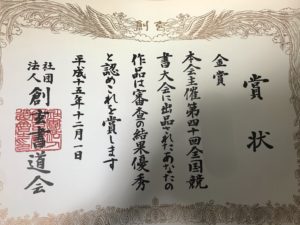 創玄
賞状
金賞
本会主催第四十回全国競
書大会に出品されたあなたの
作品は審査の結果優秀
と認めこれを賞します
平成十五年十二月一日
社団法人 創玄書道会